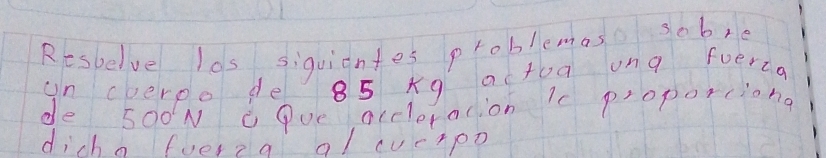 Resuelve los siguientes problemas sobre
un cuerpo de 85 Kg actua una fuerza
de 500N ¿ Que acceleracion le proporciona
dicha fuerza al cuerpo